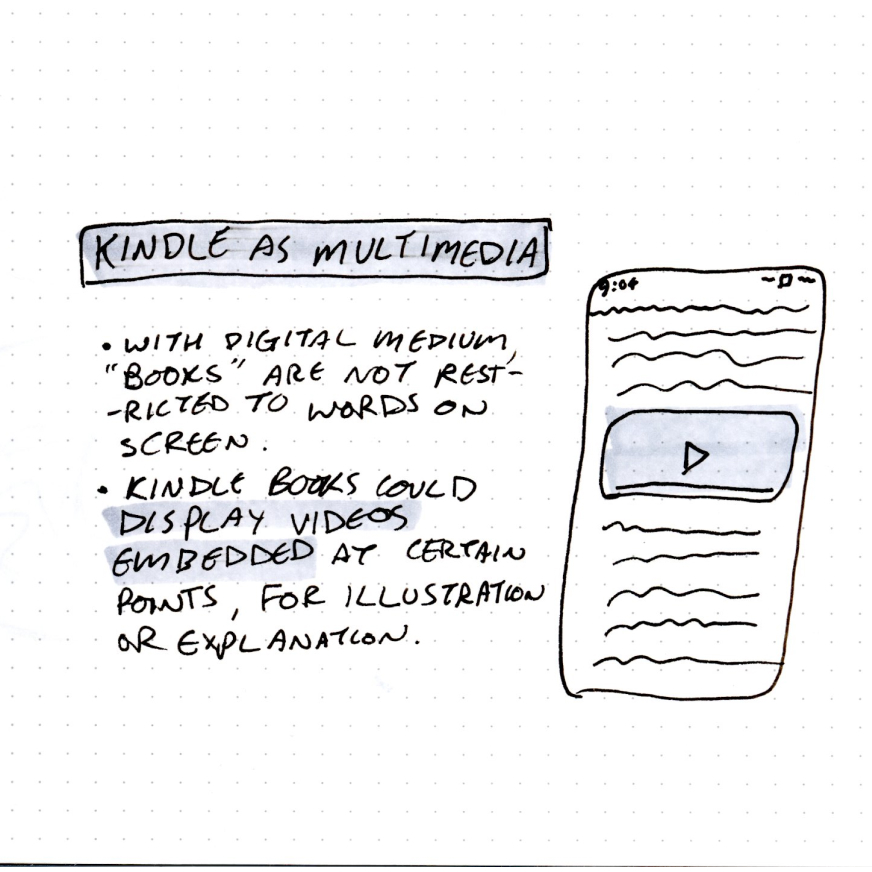 KINDLE AS MULTIMEDIA
• WITH DIGITAL MEDIUM,
"BOOKS" ARE NOT REST-
-RICTED TO WORDS ON
SCREEN.
• KINDLE BOOKS COULD
DISPLAY VIDEOS
EMBEDDED AT CERTAIN
POINTS, FOR ILLUSTRATION
OR EXPLANATION.
9:04